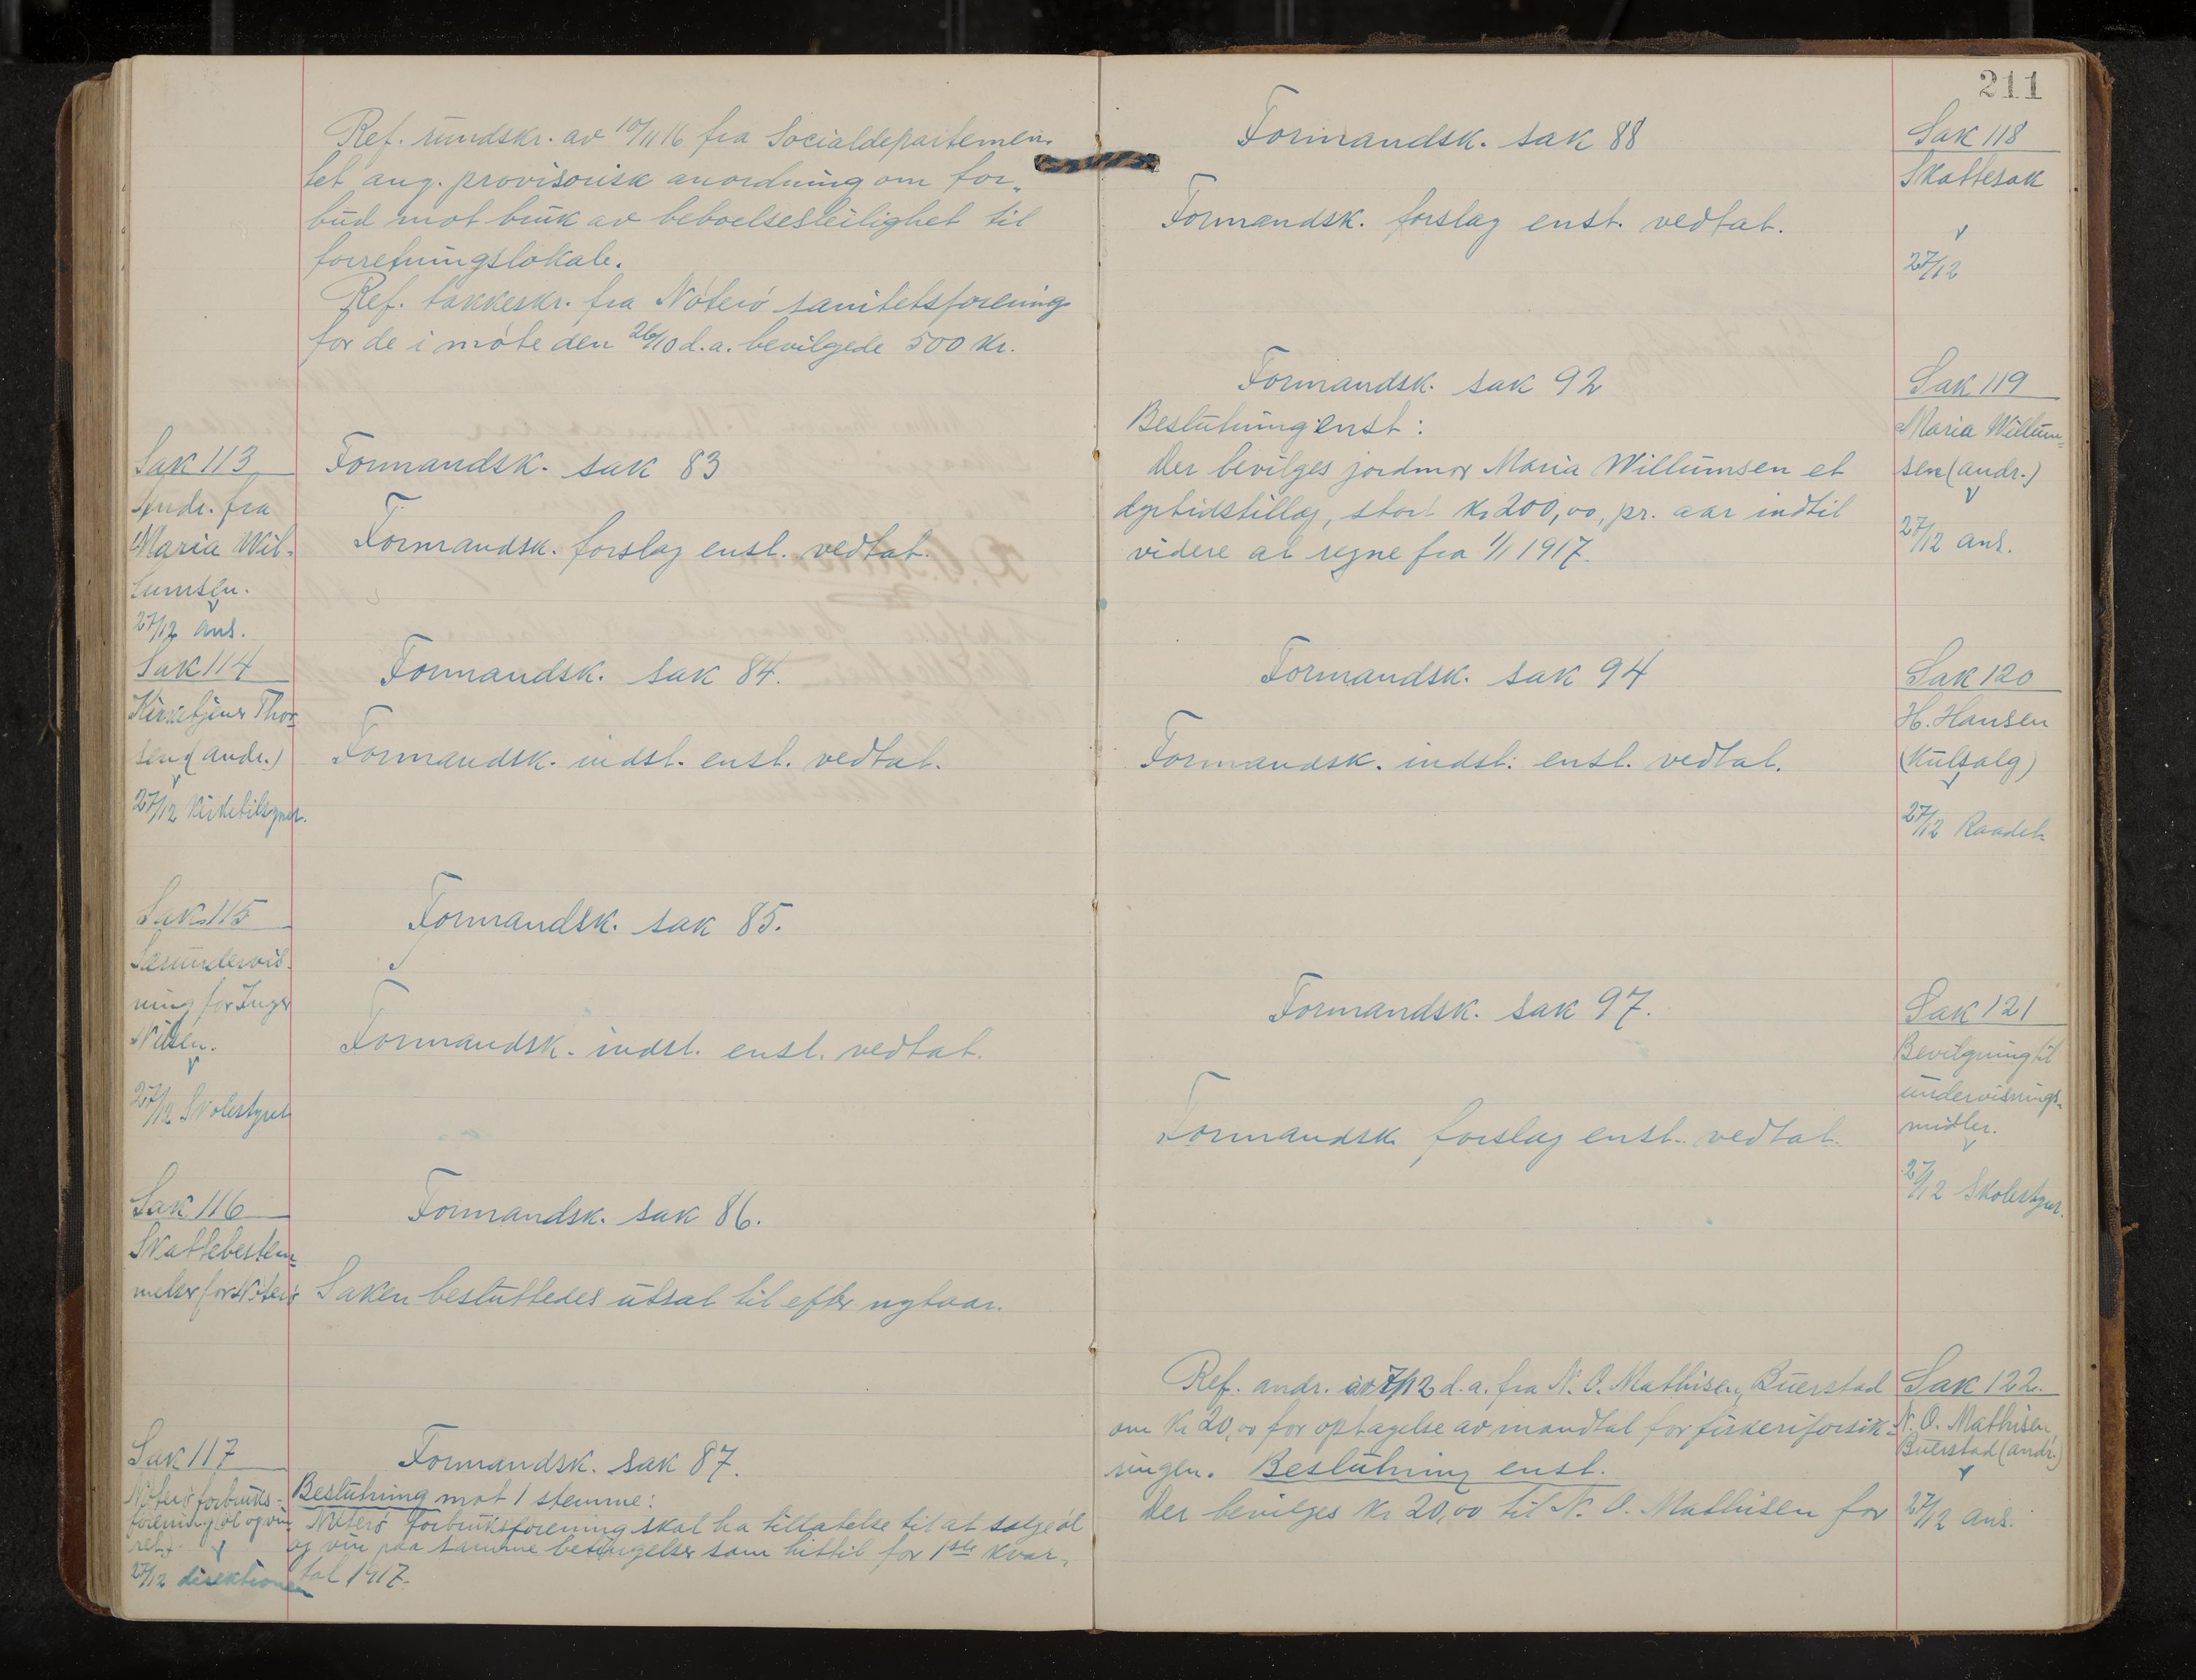 Ref. rundskr. av 10/11 16 fra Socialdepartemen-
tet ang. provisorisk anordning om for-
bud mot bruk av beboelsesleilighet til
forretningslokale.
Ref. takkeskr. fra Nøterø sanitetsforening
for de i møte den 26/10 d.a. bevilgede 500 kr.
Sak 113
Andr. fra
Maria Wil-
lumsen.
27/12 ans.
Formandsk. sak 83
Formandsk. forslag enst. vedtat.
Sak 114
Kirketjener Thor-
sen (andr.)
27/12 Kirketilsynet.
Formandsk. sak 84.
Formandsk. indst. enst. vedtat.
Sak 115
Særundervis-
ning for Inger
Nilsen.
27/12 Skolestyret
Formandsk. sak 85.
Formandsk. indst. enst. vedtat.
Sak 116
Skattebestem-
melser for Nøterø
Formandsk. sak 86.
Saken besluttedes utsat til efter nytaar.
Sak 117
Nøterø forbruks-
forening (øl og vin-
ret).
27/12 direktionen
Formandsk. sak 87.
Beslutning mot 1 stemme:
Nøterø forbruksforening skal ha tillatelse til at sælge øl
og vin paa samme betingelser som hittil for 1ste kvar-
tal 1917.
211
Formandsk. sak 88
Formandsk. forslag enst. vedtat.
Sak 118
Skattesak
27/12
Formandsk. sak 92
Beslutning enst:
Der bevilges jordmor Maria Willumsen et
dyrtidstillæg, stort kr 200,00, pr. aar indtil
videre at regne fra 1/1 1917.
Sak 119
Maria Willum-
sen (andr.)
27/12 ans.
Formandsk. sak 94
Formandsk. indst. enst. vedtat.
Sak 120
H. Hansen
(Kulsalg)
27/12 Raadet
Formandsk. sak 97.
Formandsk. forslag enst. vedtat.
Sak 121
Bevilgning til
undervisnings-
midler.
27/12 Skolestyr.
Ref. andr. av 7/12 d.a. fra N. O. Mathisen, Buerstad
om kr 20,00 for optagelse av mandtal for fiskeriforsik-
ringen. Beslutning enst.
Der bevilges kr 20,00 til N. O. Mathisen for
Sak 122.
N. O. Mathisen,
Buerstad (andr.)
27/12 ans.